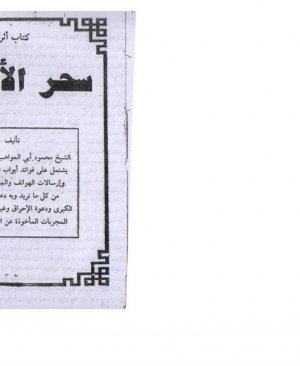 كتاب
سحر الأ
تأليف
الشيخ محمود أبي المواهب
يشتمل على فوائد أبواب
وإرسالات الهواتف
من كل ما تريد وبه
الكبرى ودعوة الإحراق
المجربات المأخوذة عن